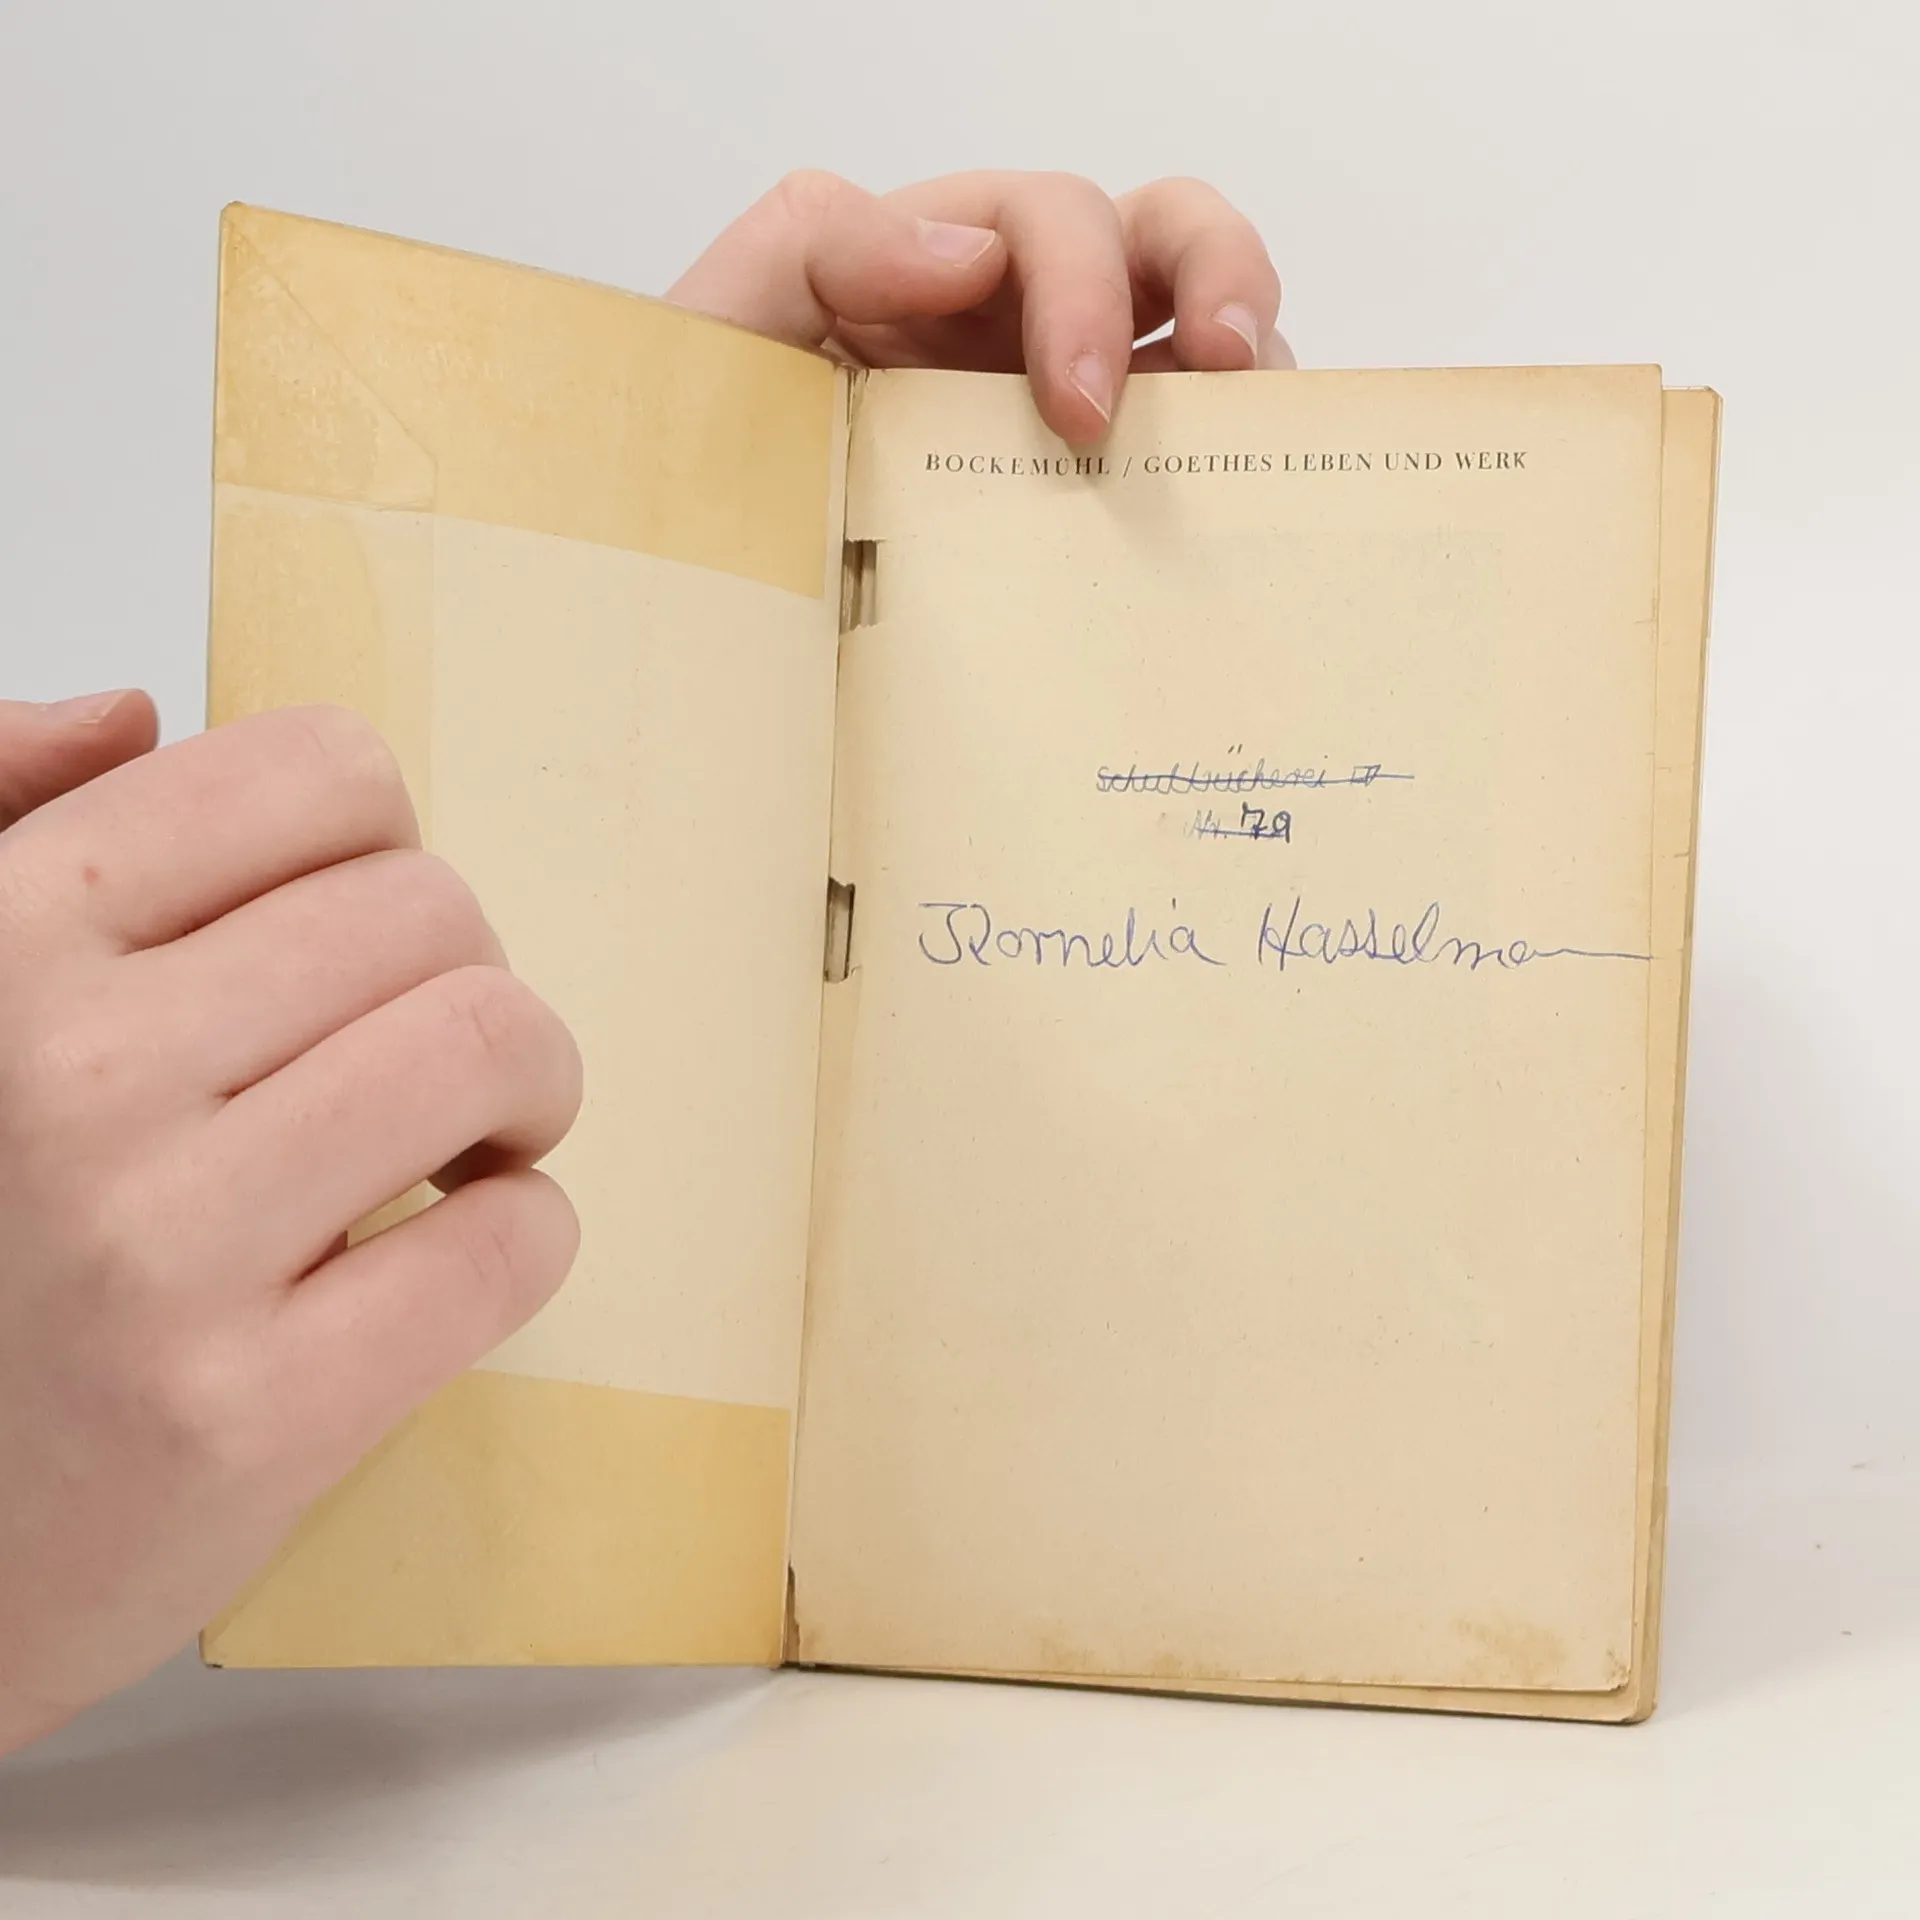 BOCKEMÜHL / GOETHES LEBEN UND WERK
Schulbücherei
Nr. 79
Kornelia Hasselmann